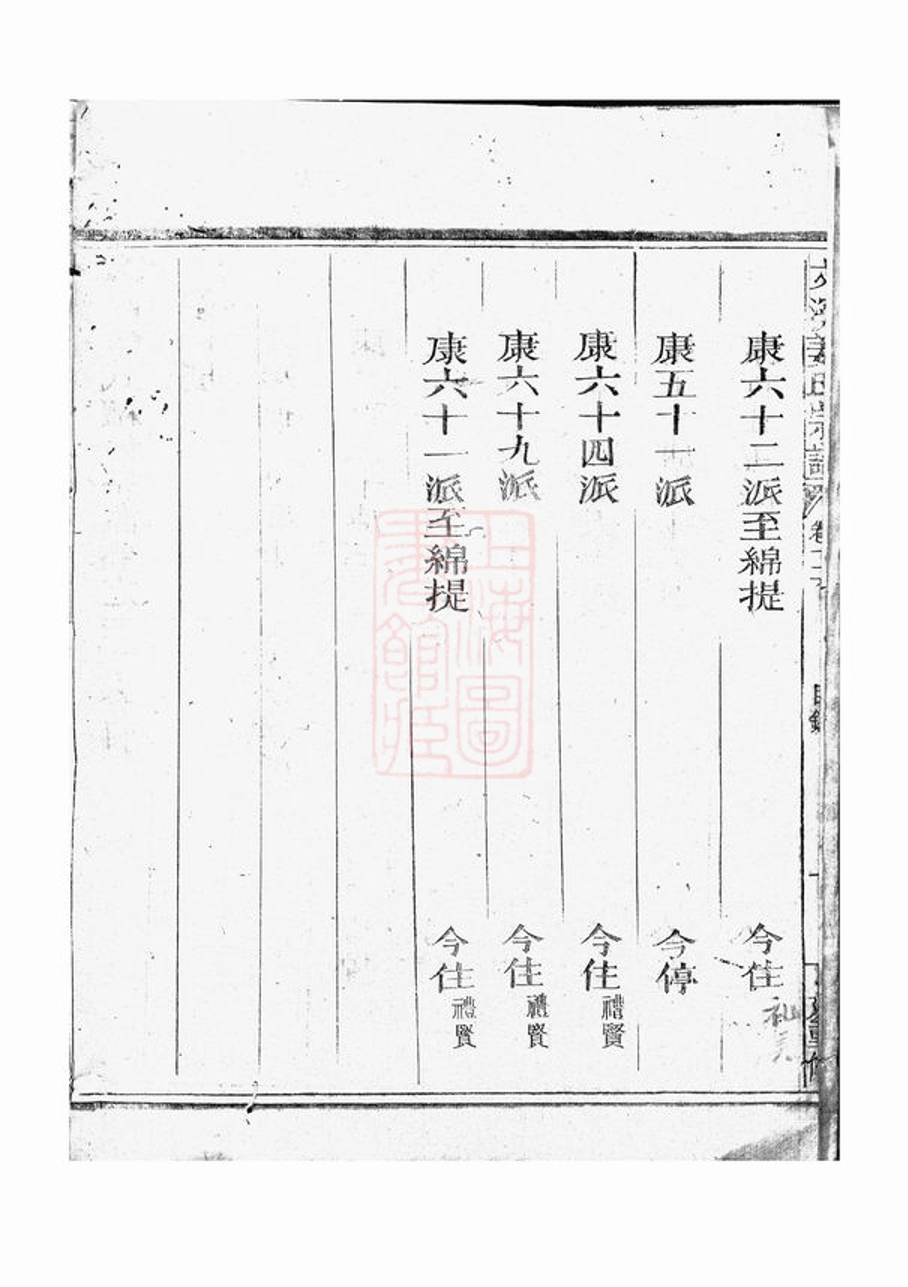 姜氏宗譜 卷
目錄
康六十二派至綿提 今住
康五十一派 今停
康六十四派 今住禮賢
康六十九派 今住禮賢
康六十一派至綿提 今住禮賢
上海圖書館藏